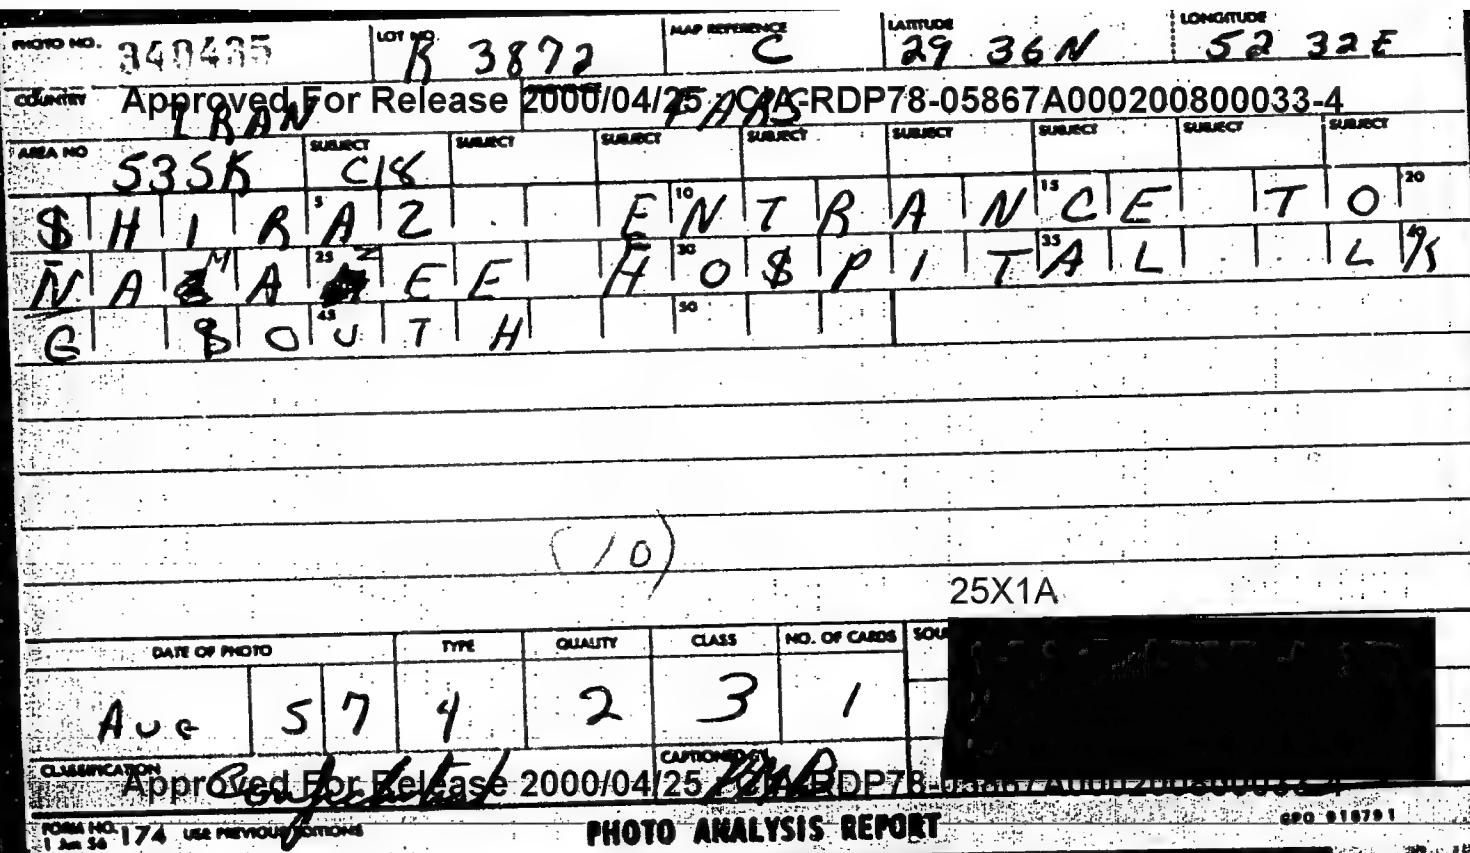 PHOTO NO. 340435 LOT NO. R 3872 MAP REFERENCE C LATITUDE 29 36N LONGITUDE 52 32E
COUNTRY IRAN FARS
Approved For Release 2000/04/25 : CIA-RDP78-05867A000200800033-4
AREA NO 535K SUBJECT C18 SUBJECT SUBJECT SUBJECT SUBJECT SUBJECT SUBJECT SUBJECT
$HIRAZ. ENTRANCE TO
NAMAZEE HO$PITAL. L/K
G $OUTH
(10)
25X1A
DATE OF PHOTO TYPE QUALITY CLASS NO. OF CARDS
AUG 57 4 2 3 1
CLASSIFICATION Confidential CAPTIONED BY
Approved For Release 2000/04/25 : CIA-RDP78-05867A000200800033-4
FORM NO. 174 USE PREVIOUS EDITIONS PHOTO ANALYSIS REPORT GPO 918791
1 Jan 56